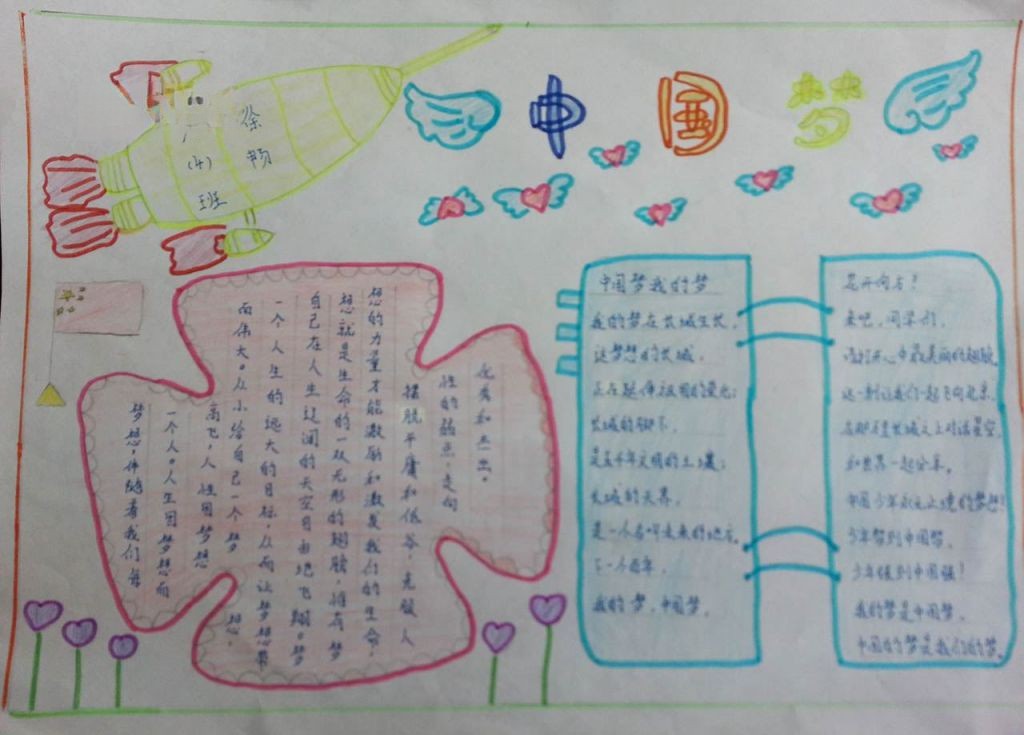 中国梦
徐畅
(4)
班
梦想,伴随着我们每
一个人。人生因梦想而
高飞,人性因梦想
而伟大。从小给自己一个梦想,
一个人生的远大的目标,从而让梦想带
自己在人生辽阔的天空自由地飞翔。梦
想就是生命的一双无形的翅膀,拥有梦
想的力量才能激励和激发我们的生命,
摆脱平庸和低谷,克服人
性的弱点,走向
优秀和杰出。
中国梦我的梦
我的梦在长城生长,
这梦想的长城,
正在延伸祖国的荣光;
长城的脚下,
是五千年文明的土壤;
长城的天界,
是一个名叫未来的地方。
下一个百年,
我的梦,中国梦。
是开向右!
来吧,同学们,
请打开心中最美丽的翅膀,
这一刻让我们一起飞向北京,
在那里长城之上对话星空,
和世界一起分享。
中国少年永无止境的梦想!
少年梦则中国梦,
少年强则中国强!
我的梦是中国梦,
中国的梦是我们的梦。